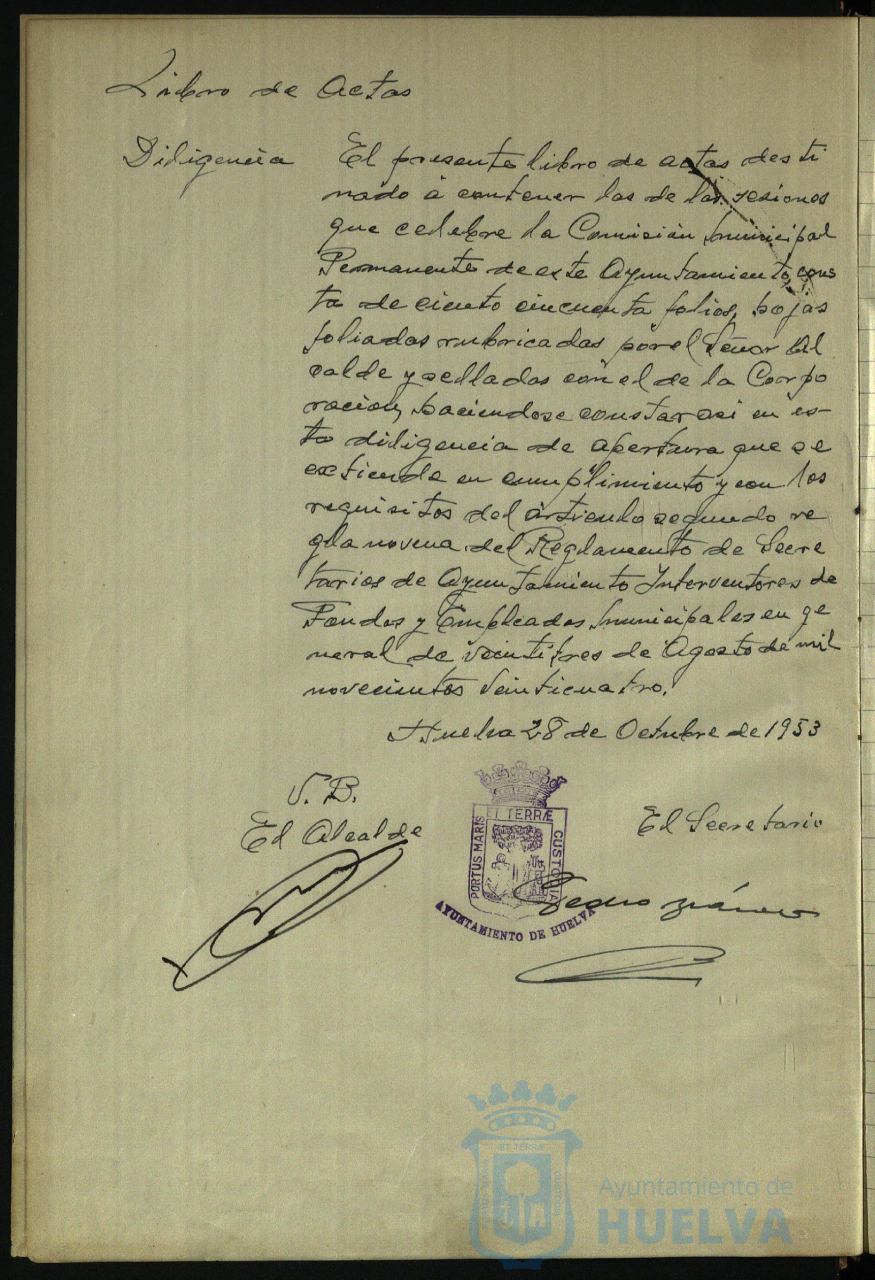 Libro de Actas
Diligencia El presente libro de actas desti
nado a contener las de las sesiones
que celebre la Comisión Municipal
Permanente de este Ayuntamiento, cons
ta de ciento cincuenta folios, hojas
foliadas rubricadas por el Señor Al
calde y selladas con el de la Corpo
racion, haciendose constar asi en es-
ta diligencia de apertura que se
extiende en cumplimiento y con los
requisitos del artículo segundo re
gla novena del Reglamento de Secre
tarios de Ayuntamiento Interventores de
Fondos y Empleados Municipales en ge
neral de veintitres de Agosto de mil
novecientos veinticuatro.
Huelva 28 de Octubre de 1953
V. B.
El Alcalde
El Secretario
PORTUS MARIS ET TERRÆ CUSTODIA
AYUNTAMIENTO DE HUELVA
Pedro
Ayuntamiento de
HUELVA